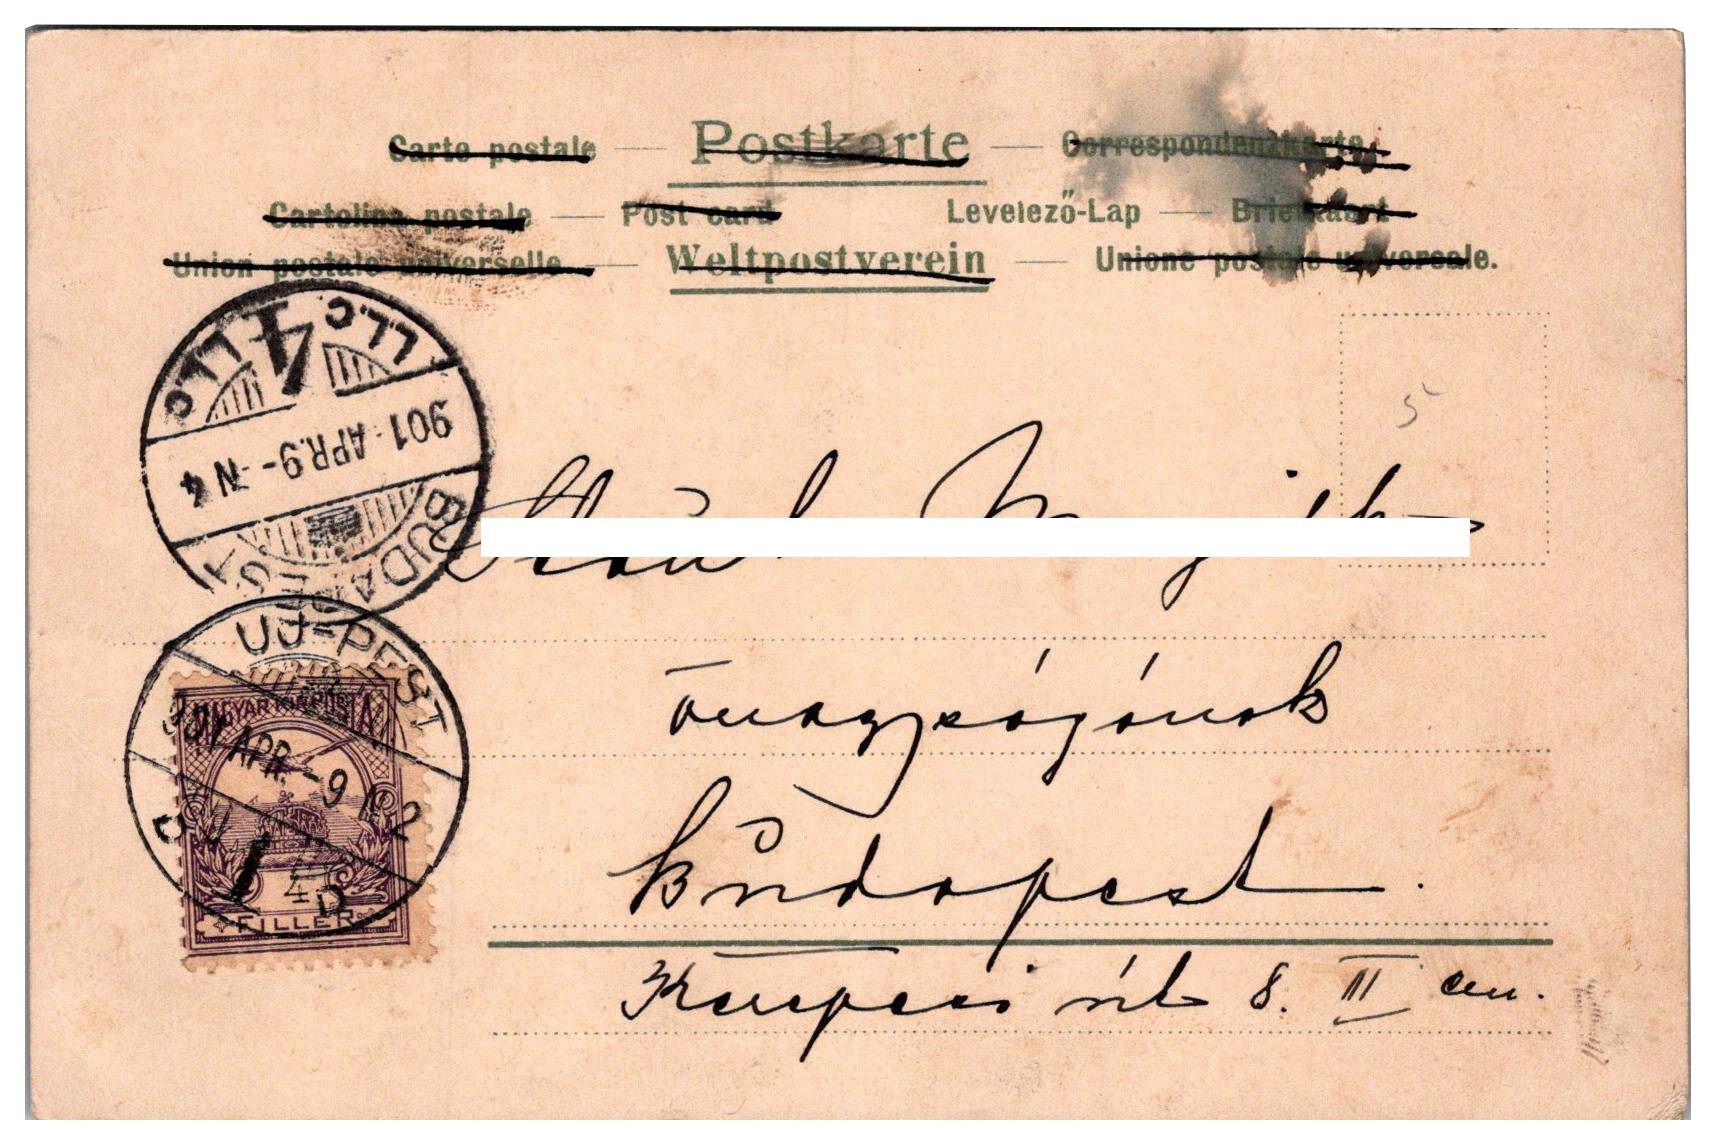 Carte postale — Postkarte — Correspondenzkarte
Cartolina postale — Post card Levelező-Lap — Briefkaart
Union postale universelle — Weltpostverein — Unione postale universale.
4
901 APR. 9 - N 4
BUDAPEST
5
UJ-PEST
901 APR. - 9 N 2
MAGYAR KIR. POSTA
4
FILLÉR
őnagyságának
Budapest.
Kerepesi út 8. II em.